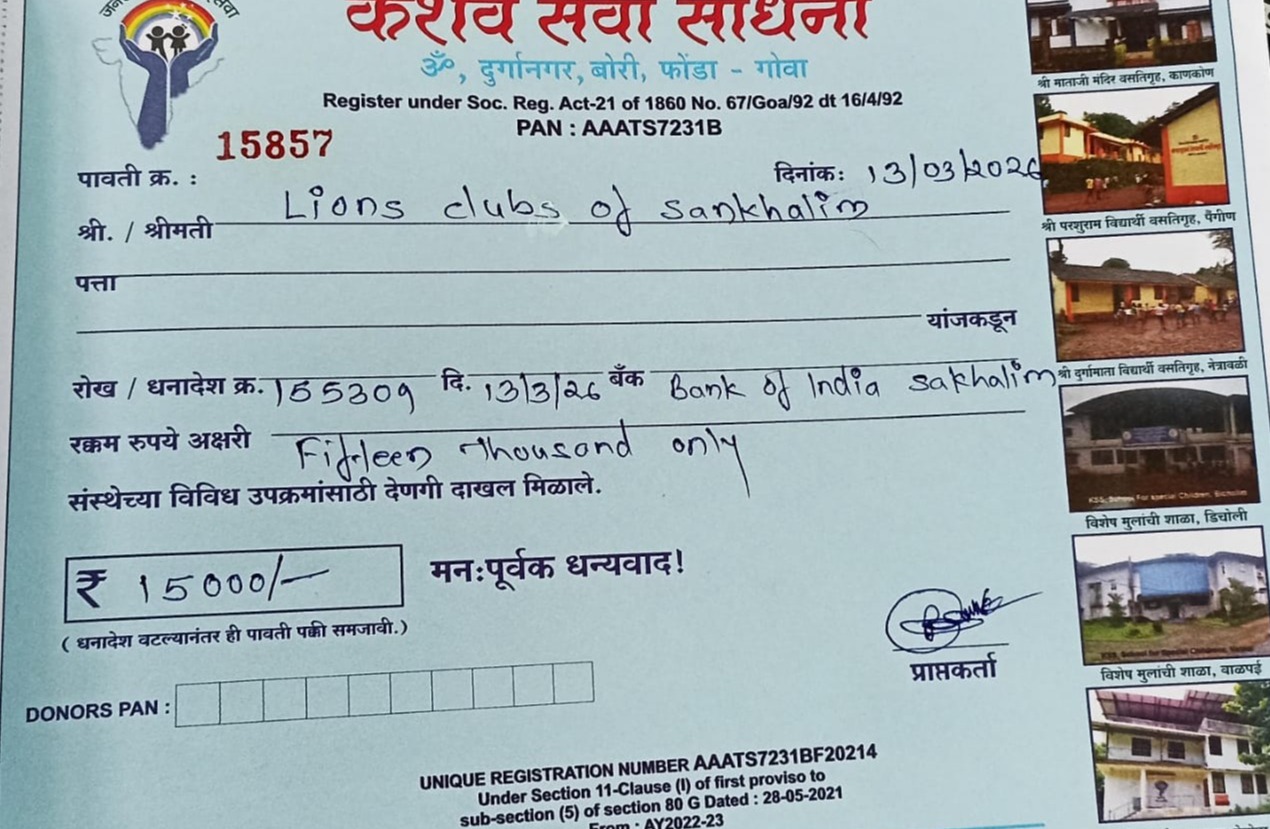 सेवा
केशव सेवा साधना
ॐ, दुर्गानगर, बोरी, फोंडा - गोवा
Register under Soc. Reg. Act-21 of 1860 No. 67/Goa/92 dt 16/4/92
PAN : AAATS7231B
15857
पावती क्र. :
दिनांक: 13/03/2026
श्री. / श्रीमती Lions clubs of Sankhalim
पत्ता
यांजकडून
रोख / धनादेश क्र. 155309 दि. 13/3/26 बँक Bank of India sakhalim
रक्कम रुपये अक्षरी Fifteen Thousand only
संस्थेच्या विविध उपक्रमांसाठी देणगी दाखल मिळाले.
₹ 15000/-
मन:पूर्वक धन्यवाद!
( धनादेश वटल्यानंतर ही पावती पक्की समजावी.)
प्राप्तकर्ता
DONORS PAN :
UNIQUE REGISTRATION NUMBER AAATS7231BF20214
Under Section 11-Clause (I) of first proviso to
sub-section (5) of section 80 G Dated : 28-05-2021
From : AY2022-23
श्री माताजी मंदिर वसतिगृह, काणकोण
श्री परशुराम विद्यार्थी वसतिगृह, पैंगीण
श्री दुर्गामाता विद्यार्थी वसतिगृह, नेत्रावळी
KSS, School For special Children, Bicholim
विशेष मुलांची शाळा, डिचोली
KSS, School for Special Children,
विशेष मुलांची शाळा, वाळपई